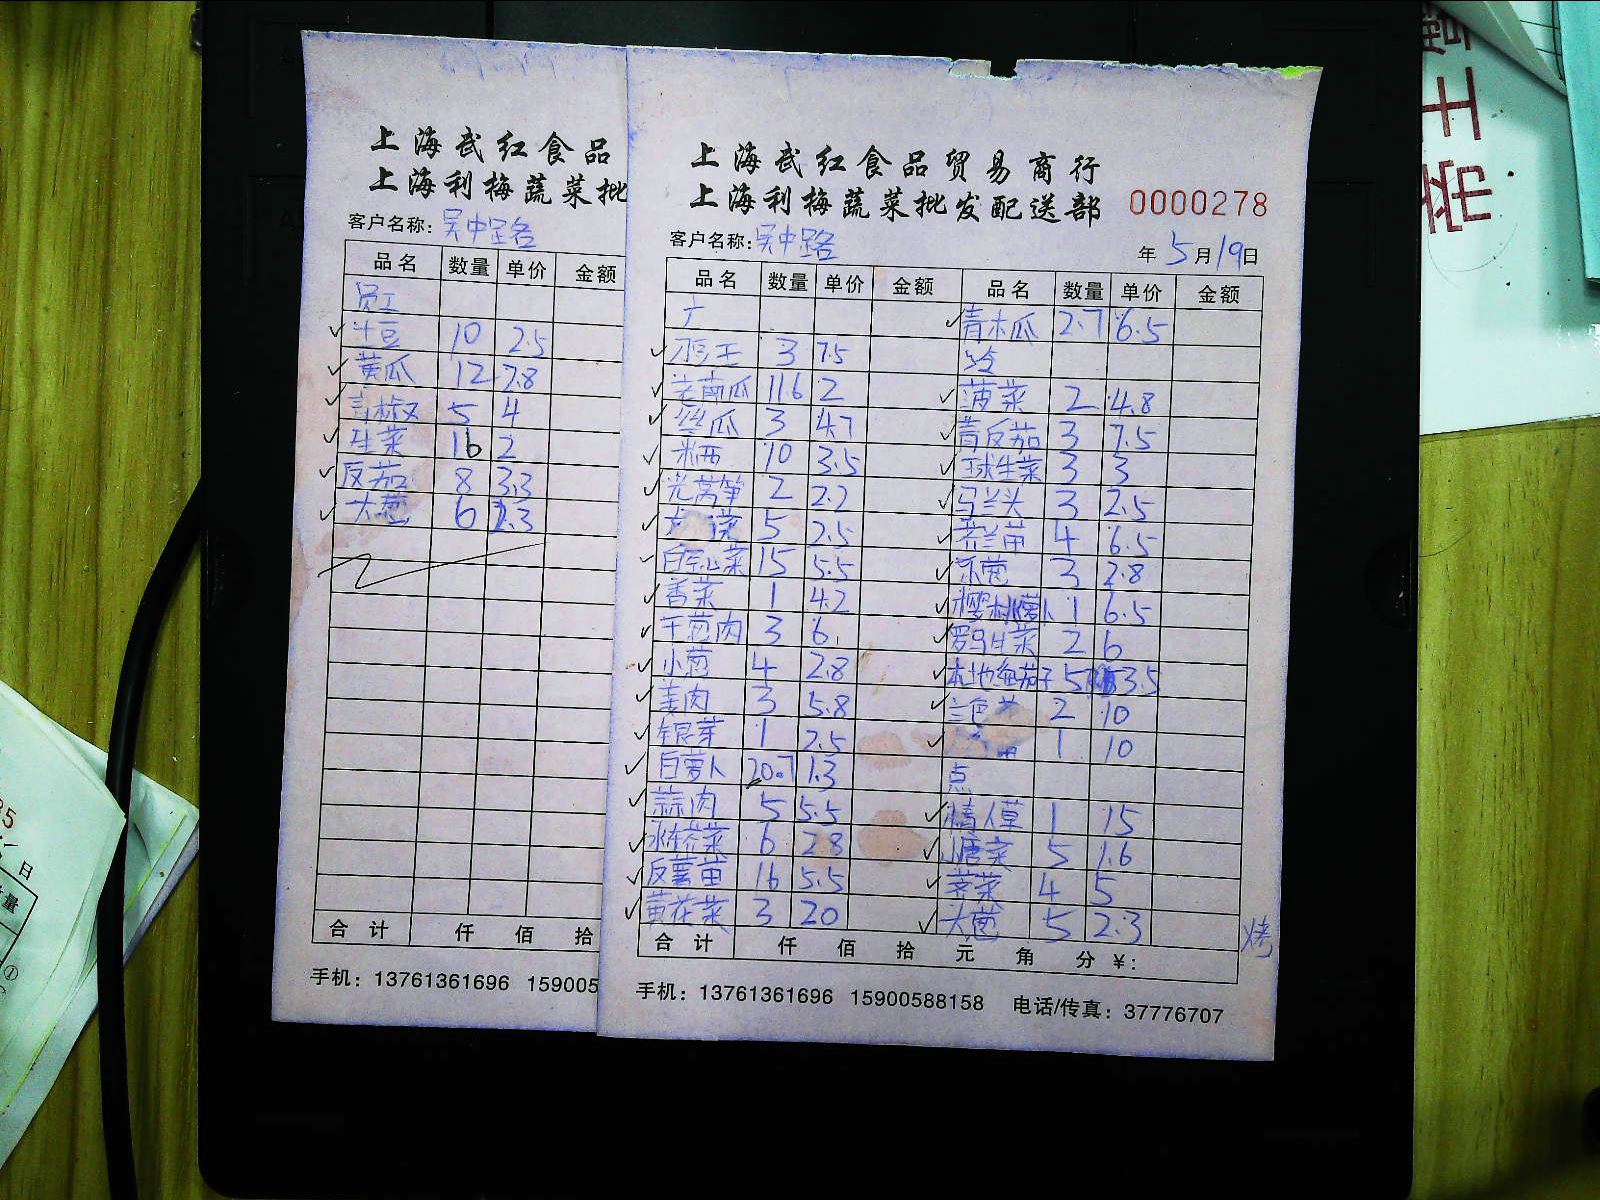 上海武红食品
上海利梅蔬菜批
客户名称: 吴中路
品名 数量 单价 金额
员工
土豆 10 2.5
黄瓜 12 7.8
青椒 5 4
生菜 16 2
反茄 8 3.3
大葱 6 2.3
合计 仟 佰 拾
手机: 13761361696 159005
上海武红食品贸易商行
上海利梅蔬菜批发配送部 0000278
客户名称: 吴中路 年 5 月 19 日
品名 数量 单价 金额 品名 数量 单价 金额
青木瓜 2.7 6.5
3 7.5 冷
老南瓜 11.6 2 菠菜 2 4.8
丝瓜 3 4.7 青反茄 3 7.5
米西 10 3.5 球生菜 3 3
光莴笋 2 2.2 马兰头 3 2.5
菜 5 2.5 芥兰苗 4 6.5
白空心菜 15 5.5 京葱 3 2.8
香菜 1 4.2 樱桃萝卜 1 6.5
干葱肉 3 6. 罗马生菜 2 6
小葱 4 2.8 本地 茄子 5 3.5
姜肉 3 5.8 2 10
银芽 1 2.5 1 10
白萝卜 20.7 1.3 点
蒜肉 5 5.5 情人草 1 15
水东芥菜 6 2.8 小唐菜 5 1.6
反薯苗 16 5.5 荠菜 4 5
黄花菜 3 20 大葱 5 2.3
烤
合计 仟 佰 拾 元 角 分 ¥:
手机: 13761361696 15900588158 电话/传真: 37776707